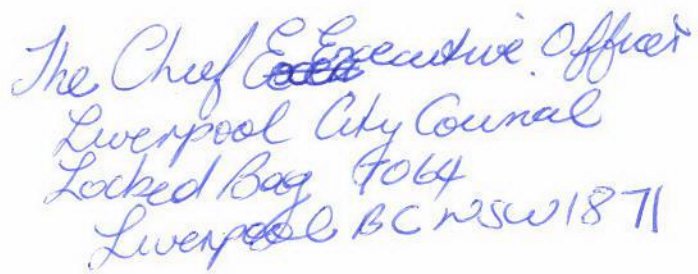 The Chief Executive Officer
Liverpool City Council
Locked Bag 7064
Liverpool BC NSW 1871